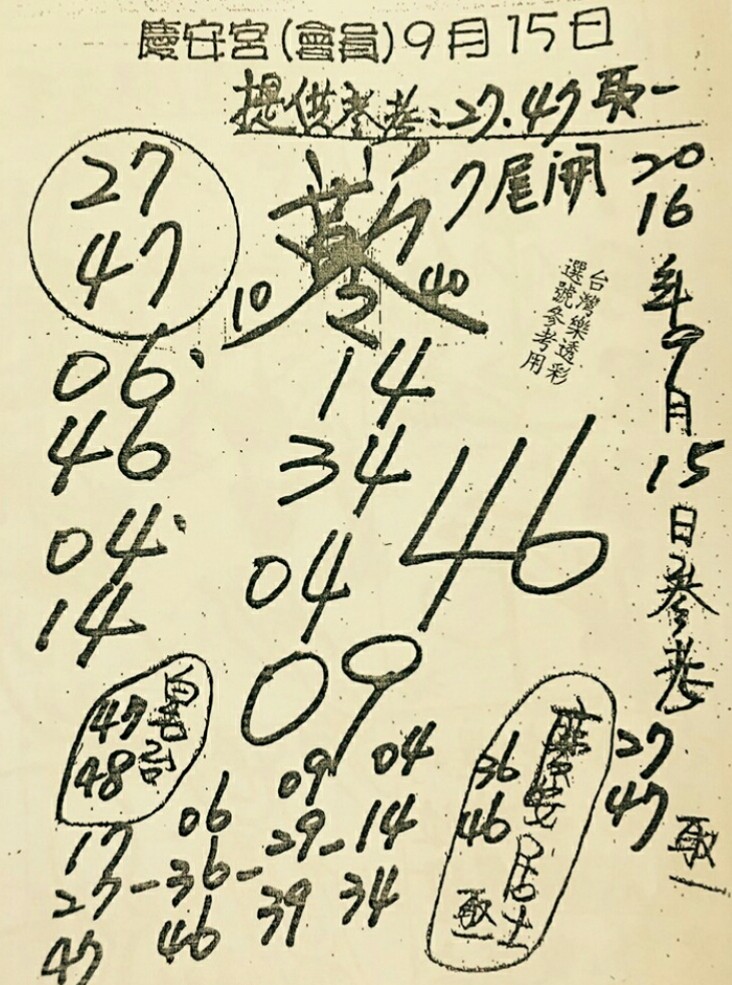 慶安宮(會員)9月15日
提供參考:27.47取一
7尾開
27
47
10
40
2
06
46
04
14
14
34
04
46
09
台灣樂透彩
選號參考用
2016年9月15日參考
27
47
取一
47
48
慶安居士
36
46
取一
17
27-36-29-14
47
06
46
09
39
04
34